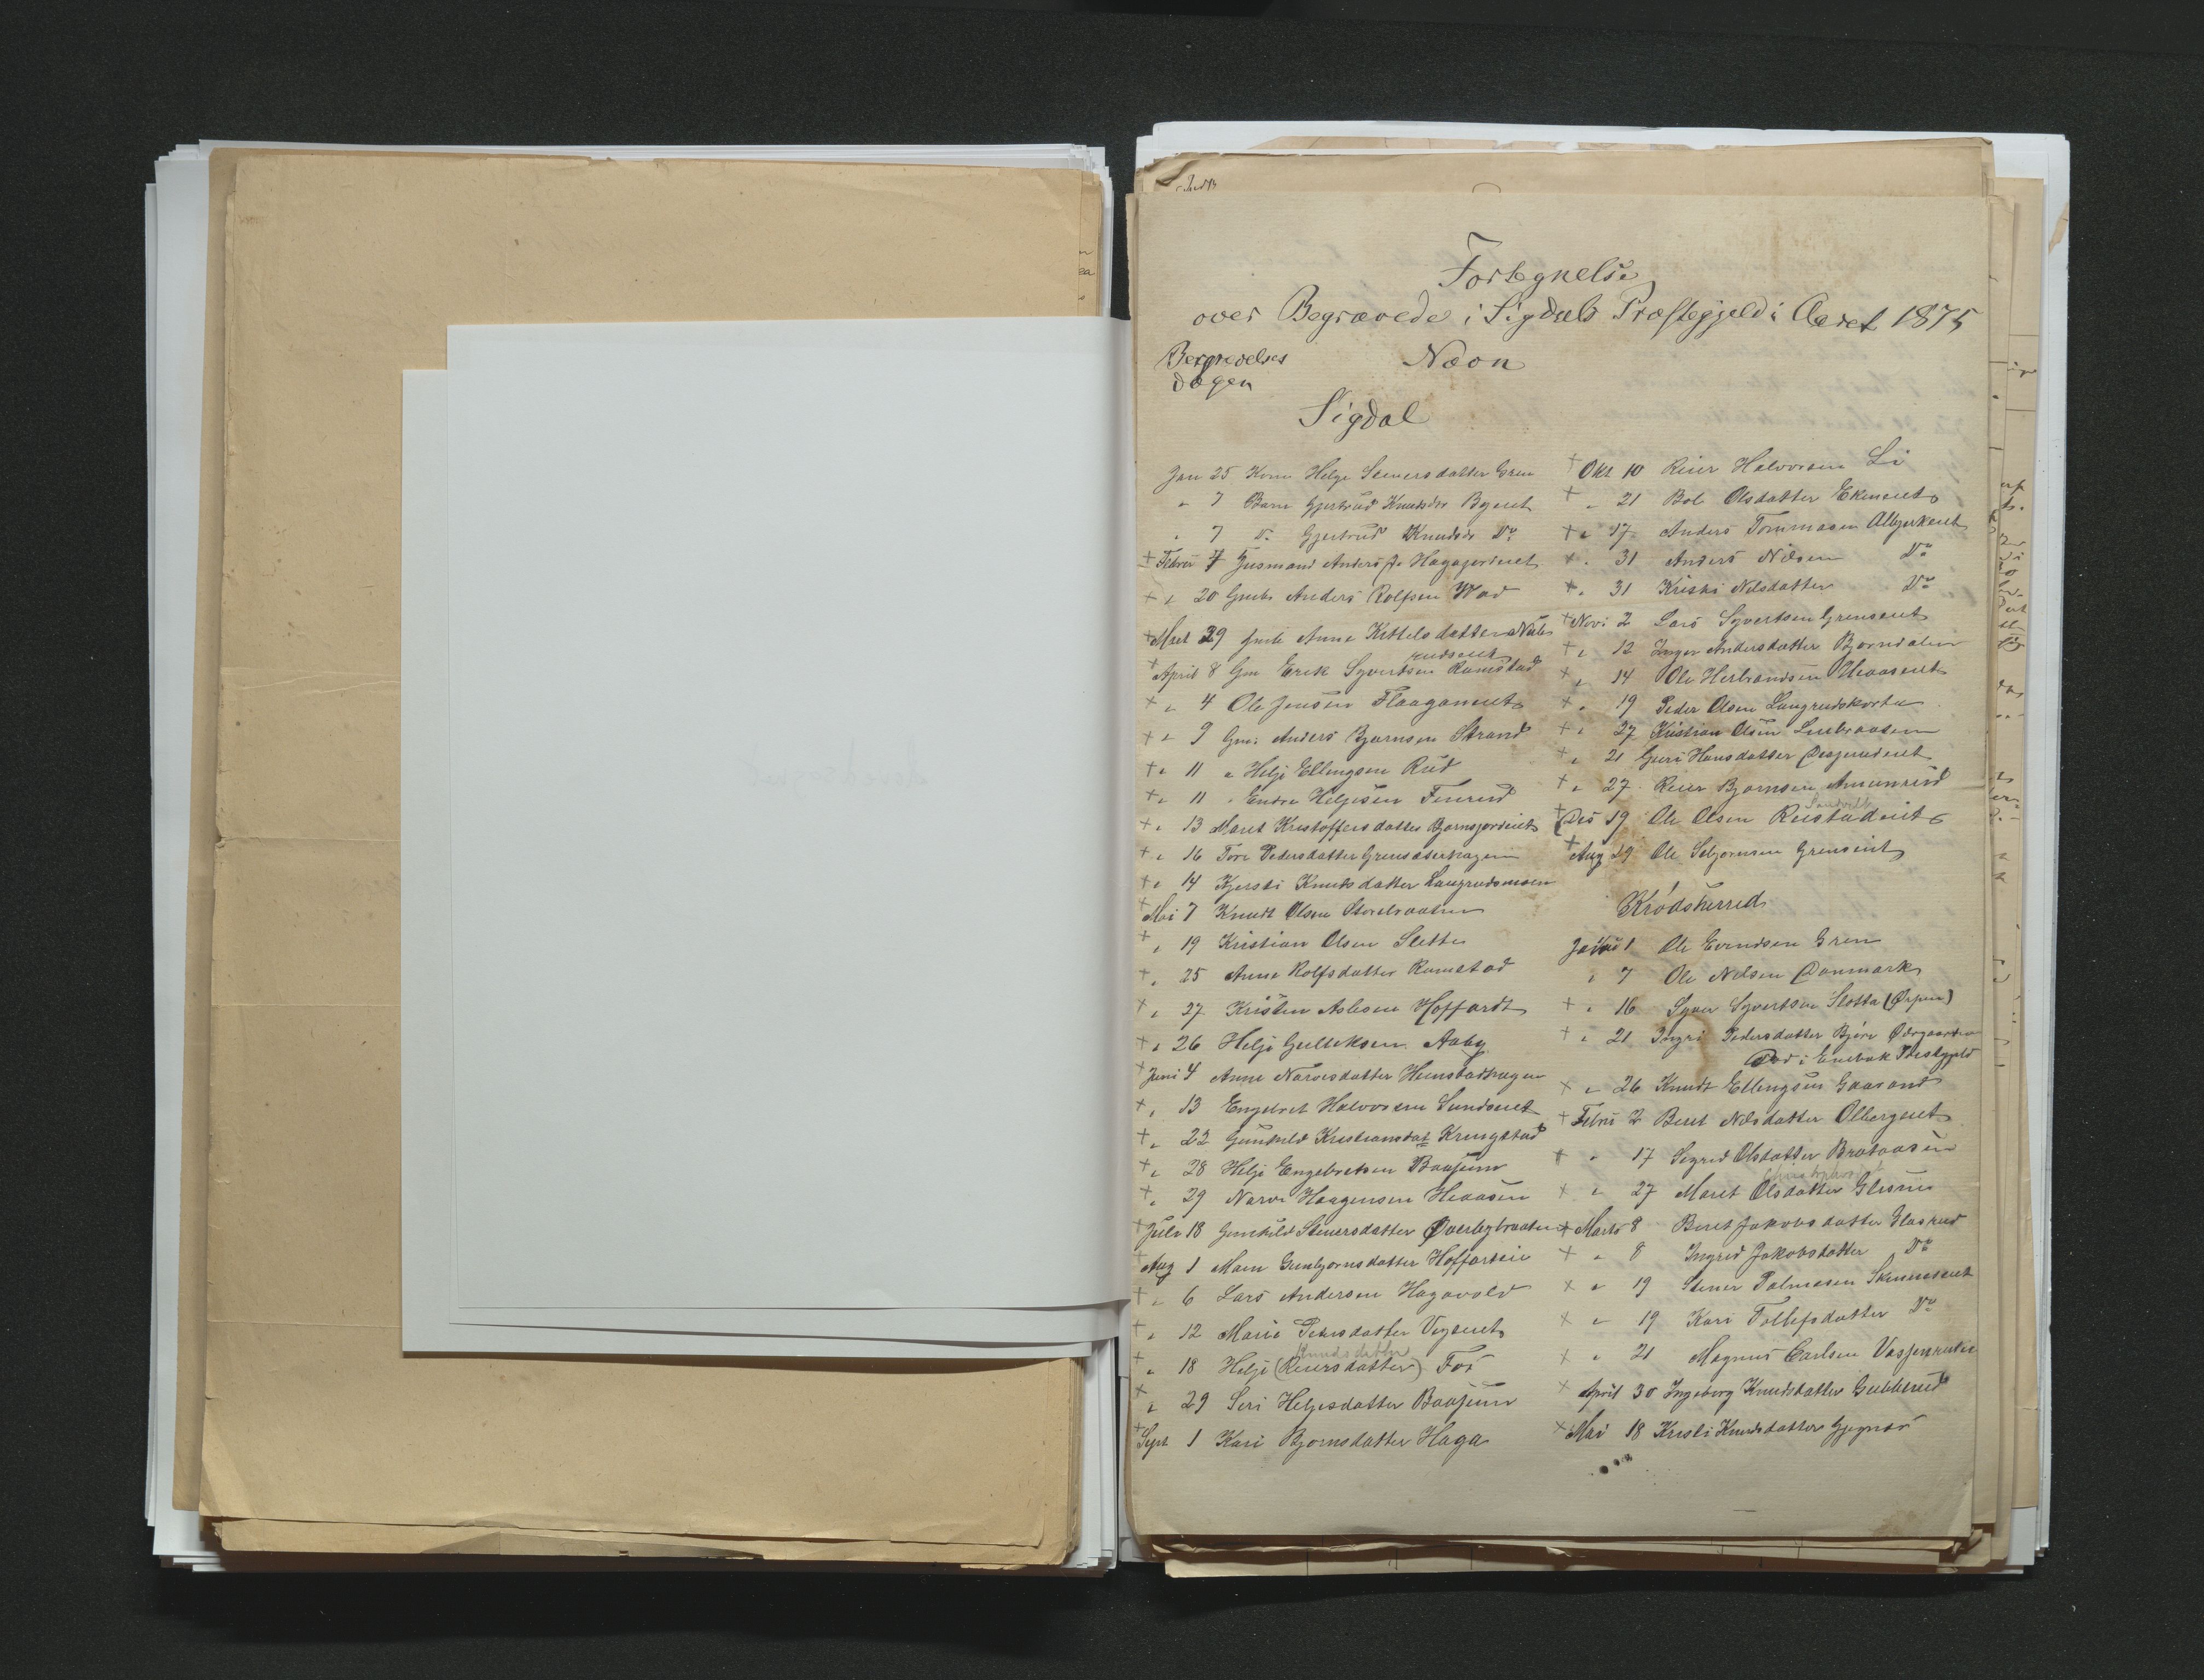 Fortegnelse
over Begravede i Sigdals Præstegjeld i Aaret 1875
Begravelses
dagen
Navn
Sigdal
Jan 25 Kone Helge Steinersdatter Gren
" 7 Barn Gjertrud Knutsdtr Bgeiet
" 7 Do Gjertrud Knudsdr Do
+ Februr 7 Gusmand Anders
+ " 20 Anders Rolfsen Wad
+ Mart 29 Anne Kittelsdatter
rudseiet
+ April 8 Gm Erik Syvertsen Ramstad
+ " 4 Ole Jensen Flaaganeiet
+ " 9 Gm. Anders Bjørnsen Strand
+ " 11 " Helje Ellingsen Rud
+ " 11 " Endre Helgesen Finrud
+ " 13 Marit Kristoffersdatter Bjørnsjordeiet
+ " 16 Tore Pedersdatter Grensæterhagen
+ " 14 Kjersti Knutsdatter Langrudsmoen
+ Mai 7 Knudt Olsen Storebraaten
+ " 19 Kristian Olsen Slette
+ " 25 Anne Rolfsdatter Ramstad
+ " 27 Kristen Aslesen Hoffardt
+ " 26 Helje Gulleksen Aaby
+ Juni 4 Anne Narvesdatter Hemstadhagen
+ " 13 Engebret Halvorsen Sundseiet
+ " 22 Gunhild Kristiansdat Kringstad
+ " 28 Helje Engebretsen Baasum
+ " 29 Narve Haagensen Heaasen
+ Juli 18 Gunhild Steinersdatter Øverbybraaten
+ Aug 1 Maren Gunbjørnsdatter Hoffarteie
+ " 6 Lars Andersen Hagavold
+ " 12 Marie Petersdatter Vegseiet
Knudsdatter
+ " 18 Helje (Reiersdatter) Fos
+ " 29 Siri Helgesdatter Baasum
+ Sept 1 Kari Bjørnsdatter Haga
+ Okt 10 Reier Halvorsen Li
+ " 21 Bol Olsdatter Ekerneiet
+ " 17 Anders Tommasen Albjerkeiet
+ " 31 Anders Nilsen Do
+ " 31 Kristi Nilsdatter Do
+ Nov 2 Lars Syvertsen Grenseiet
+ " 12 Inger Andersdatter Bjørndalen
+ " 14 Ole Herbrandsen Heaaseiet
+ " 19 Peder Olsen Langrudskorta
+ " 27 Kristian Olsen
+ " 21 Guri Hansdatter
+ " 27 Reier Bjørnsen Amunrud
Sandvik
+ Des 19 Ole Olsen Rustadeiet
+ Aug 29 Ole Sebjørnsen Grenseiet
Krødsherred
Januar 1 Ole Evendsen Gren
" 7 Ole Nilsen Danmark
+ " 16 Syver Syvertsen Slotta (Ørpen)
+ " 21 Ingri Pedersdatter Bjøre Ødegaarden
Død i Enebak Prestgjeld
+ " 26 Knudt Ellingsen Gaasand
+ Febru 2 Berit Nilsdatter Olbergeiet
+ " 17 Sigrid Olsdatter Brataasen
+ " 27 Marit Olsdatter Glesne
+ Marts 8 Berit Jakobsdatter Glasrud
+ " 8 Ingrid Jakobsdatter Do
+ " 19 Steiner Palmesen Skinneseiet
+ " 19 Kari Tollefsdatter Do
+ " 21 Magnus Carlsen
+ April 30 Ingeborg Knudsdatter Gubberud
+ Mai 18 Kristi Knudsdatter Gjegnæs